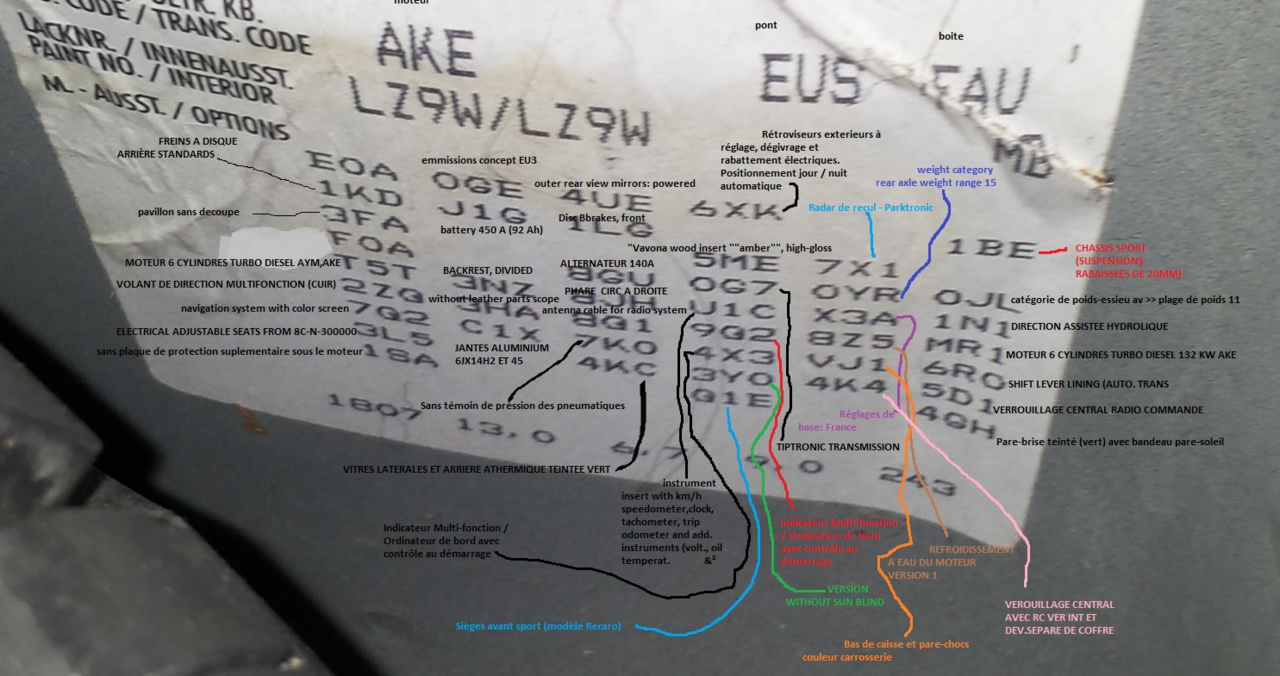 moteur
KB.
CODE / TRANS. CODE
LACKNR. / INNENAUSST.
PAINT NO. / INTERIOR
M. - AUSST. / OPTIONS
AKE
pont
EUS
boite
FAU
LZ9W/LZ9W
MB
FREINS A DISQUE
ARRIÈRE STANDARDS
pavillon sans decoupe
MOTEUR 6 CYLINDRES TURBO DIESEL AYM,AKE
VOLANT DE DIRECTION MULTIFONCTION (CUIR)
navigation system with color screen
ELECTRICAL ADJUSTABLE SEATS FROM 8C-N-300000
sans plaque de protection suplementaire sous le moteur
emmissions concept EU3
outer rear view mirrors: powered
Disc Bbrakes, front
battery 450 A (92 Ah)
"Vavona wood insert ""amber"", high-gloss
BACKREST, DIVIDED
ALTERNATEUR 140A
PHARE CIRC A DROITE
without leather parts scope
antenna cable for radio system
JANTES ALUMINIUM
6JX14H2 ET 45
Rétroviseurs exterieurs à
réglage, dégivrage et
rabattement électriques.
Positionnement jour / nuit
automatique
Radar de recul - Parktronic
weight category
rear axle weight range 15
CHASSIS SPORT
(SUSPENSIONS
RABAISSEES DE 20MM)
catégorie de poids-essieu av >> plage de poids 11
DIRECTION ASSISTEE HYDROLIQUE
MOTEUR 6 CYLINDRES TURBO DIESEL 132 KW AKE
SHIFT LEVER LINING (AUTO. TRANS
VERROUILLAGE CENTRAL RADIO COMMANDE
Pare-brise teinté (vert) avec bandeau pare-soleil
E0A 0GE 4UE 6XK
1KD J1G 1LG 1BE
3FA
F0A 5ME 7X1
T5T 3NZ 8GU 0G7 0YR 0JL
2ZQ 3HA 8JH U1C X3A 1N1
7Q2 8Q1 9Q2 8Z5 MR1
3L5 C1X 7K0 4X3 VJ1 6R0
1SA 4KC 3Y0 4K4 5D1
Q1E 4GH
1807 13,0 6,7 9,0 243
Sans témoin de pression des pneumatiques
VITRES LATERALES ET ARRIERE ATHERMIQUE TEINTEE VERT
Réglages de
base: France
TIPTRONIC TRANSMISSION
instrument
insert with km/h
speedometer,clock,
tachometer, trip
odometer and add.
instruments (volt., oil
temperat. &²
Indicateur Multi-fonction /
Ordinateur de bord avec
contrôle au démarrage
Indicateur Multi-fonction
/ Ordinateur de bord
avec contrôle au
démarrage
REFROIDISSEMENT
A EAU DU MOTEUR
VERSION 1
VERSION
WITHOUT SUN BLIND
VEROUILLAGE CENTRAL
AVEC RC VER INT ET
DEV.SEPARE DE COFFRE
Sièges avant sport (modèle Recaro)
Bas de caisse et pare-chocs
couleur carrosserie